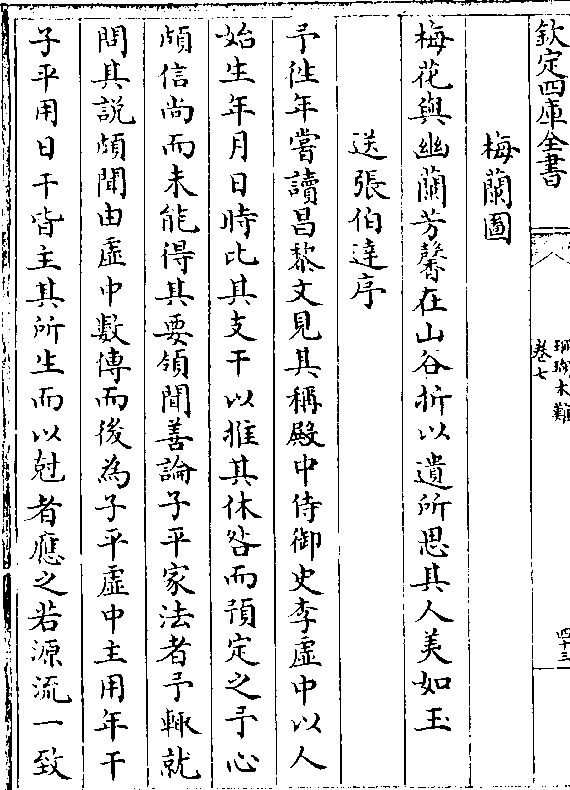 欽定四庫全書
珊瑚木難
卷七
四十三
梅蘭圖
梅花與幽蘭芳馨在山谷折以遺所思其人美如玉
送張伯達序
予徃年嘗讀昌黎文見其稱殿中侍御史李虛中以人
始生年月日時比其支干以推其休咎而預定之予心
頗信尚而未能得其要領聞善論子平家法者予輙就
問其說頗聞由虛中數傳而後為子平虛中主用年干
子平用日干皆主其所生而以尅者應之若源流一致